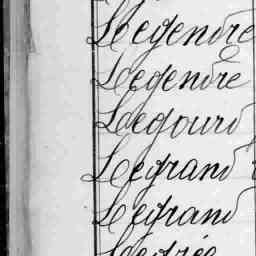 Legendre
Legendre
Legourd
Legrand
Legrand